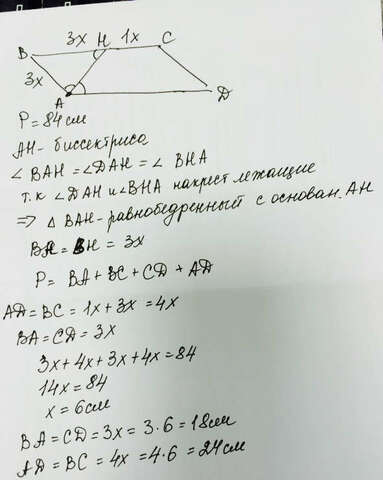 3x H 1x C
B
3x
A D
P = 84 см
AH - биссектриса
∠ BAH = ∠DAH = ∠ BHA
т.к ∠DAH и ∠BHA накрест лежащие
=> △ BAH - равнобедренный с основан. AH
BA = BH = 3x
P = BA + BC + CD + AD
AD = BC = 1x + 3x = 4x
BA = CD = 3x
3x + 4x + 3x + 4x = 84
14x = 84
x = 6 см
BA = CD = 3x = 3 · 6 = 18 см
AD = BC = 4x = 4 · 6 = 24 см